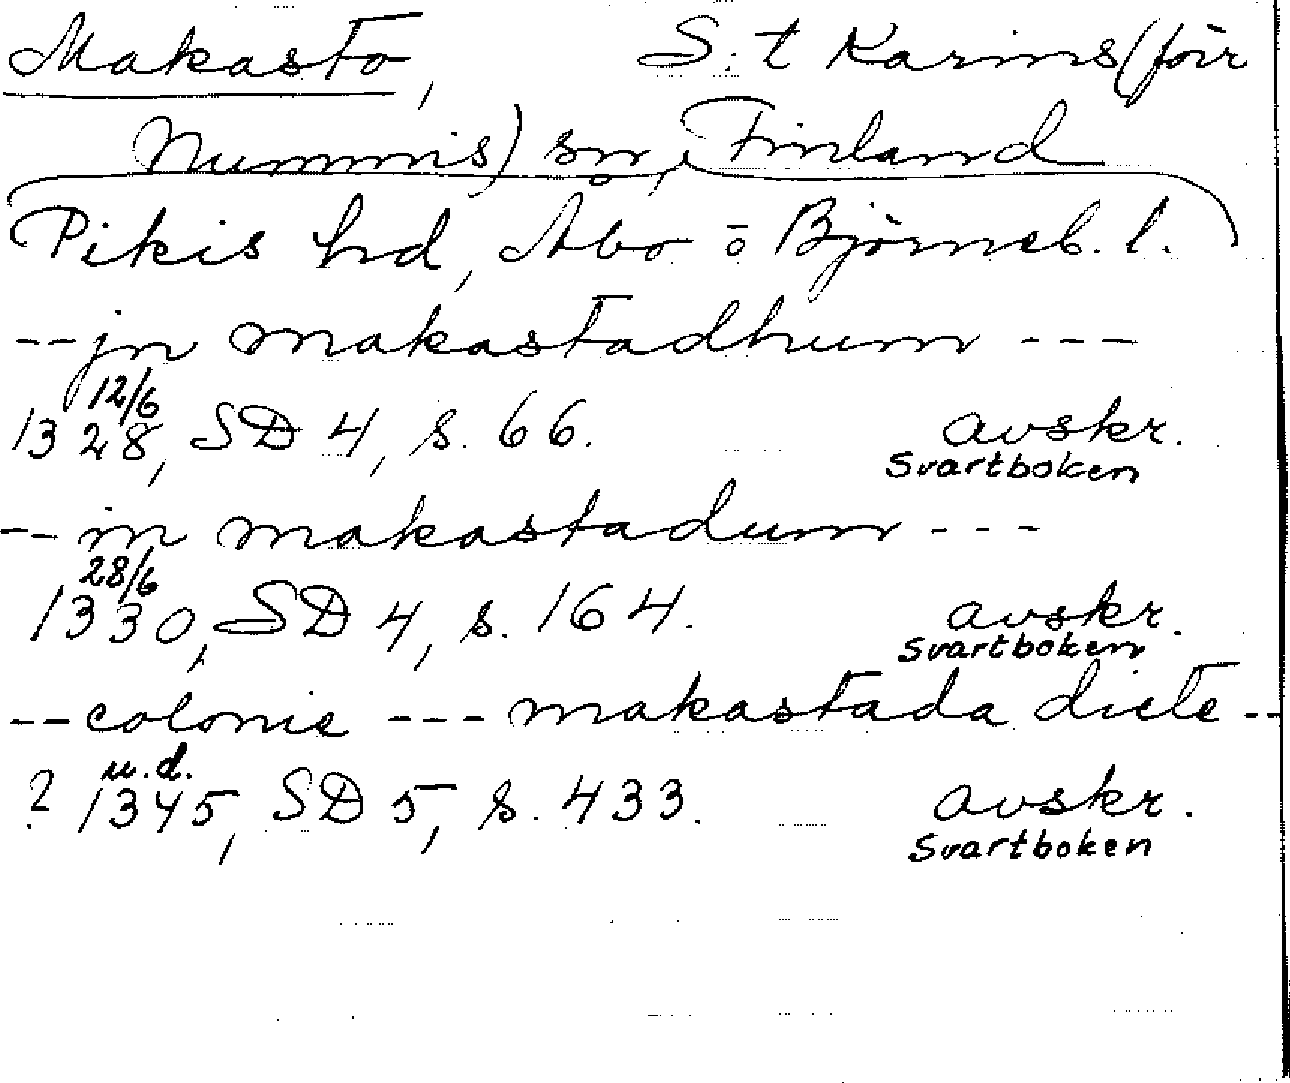 Makasto, S:t Karins (förr
Nummis) sn, Finland
Pikis hd, Åbo o Björneb. l.
--jn makastadhum ---
12/6
1328, SD 4, s. 66. avskr.
Svartboken
--in makastadum ---
28/6
1330, SD 4, s. 164. avskr.
Svartboken
--colonie --- makastada dicte --
u.d.
? 1345, SD 5, s. 433. avskr.
Svartboken